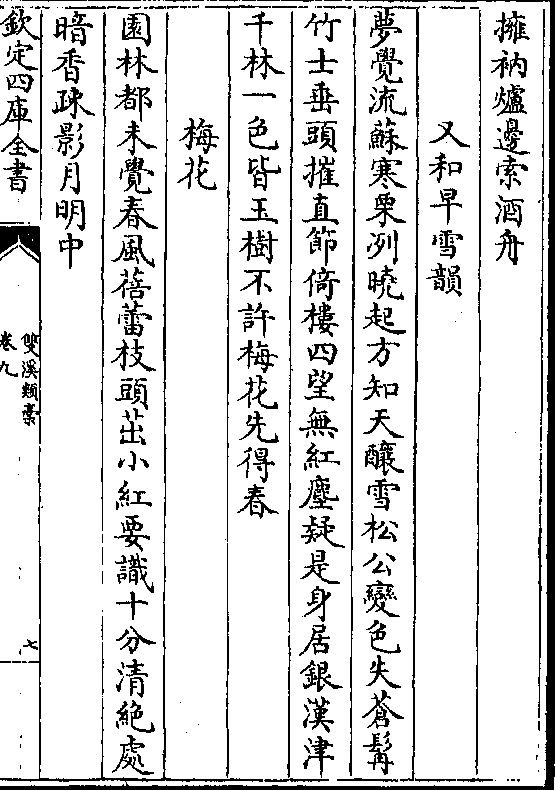 擁衲爐邊索酒舟
又和早雪韻
夢覺流蘇寒栗冽曉起方知天釀雪松公變色失蒼髯
竹士垂頭摧直節倚樓四望無紅塵疑是身居銀漢津
千林一色皆玉樹不許梅花先得春
梅花
園林都未覺春風蓓蕾枝頭茁小紅要識十分清絶處
暗香疎影月明中
欽定四庫全書
雙溪類稾
卷九
七